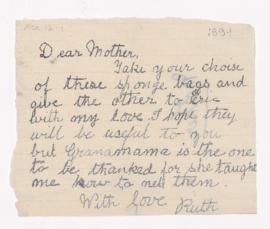 1894
Dear Mother,
Take your choise
of these sponge bags and
give the other to Eric
with my love I hope they
will be useful to you
but Granamama is the one
to be thanked for she taught
me how to net them.
With love
Ruth